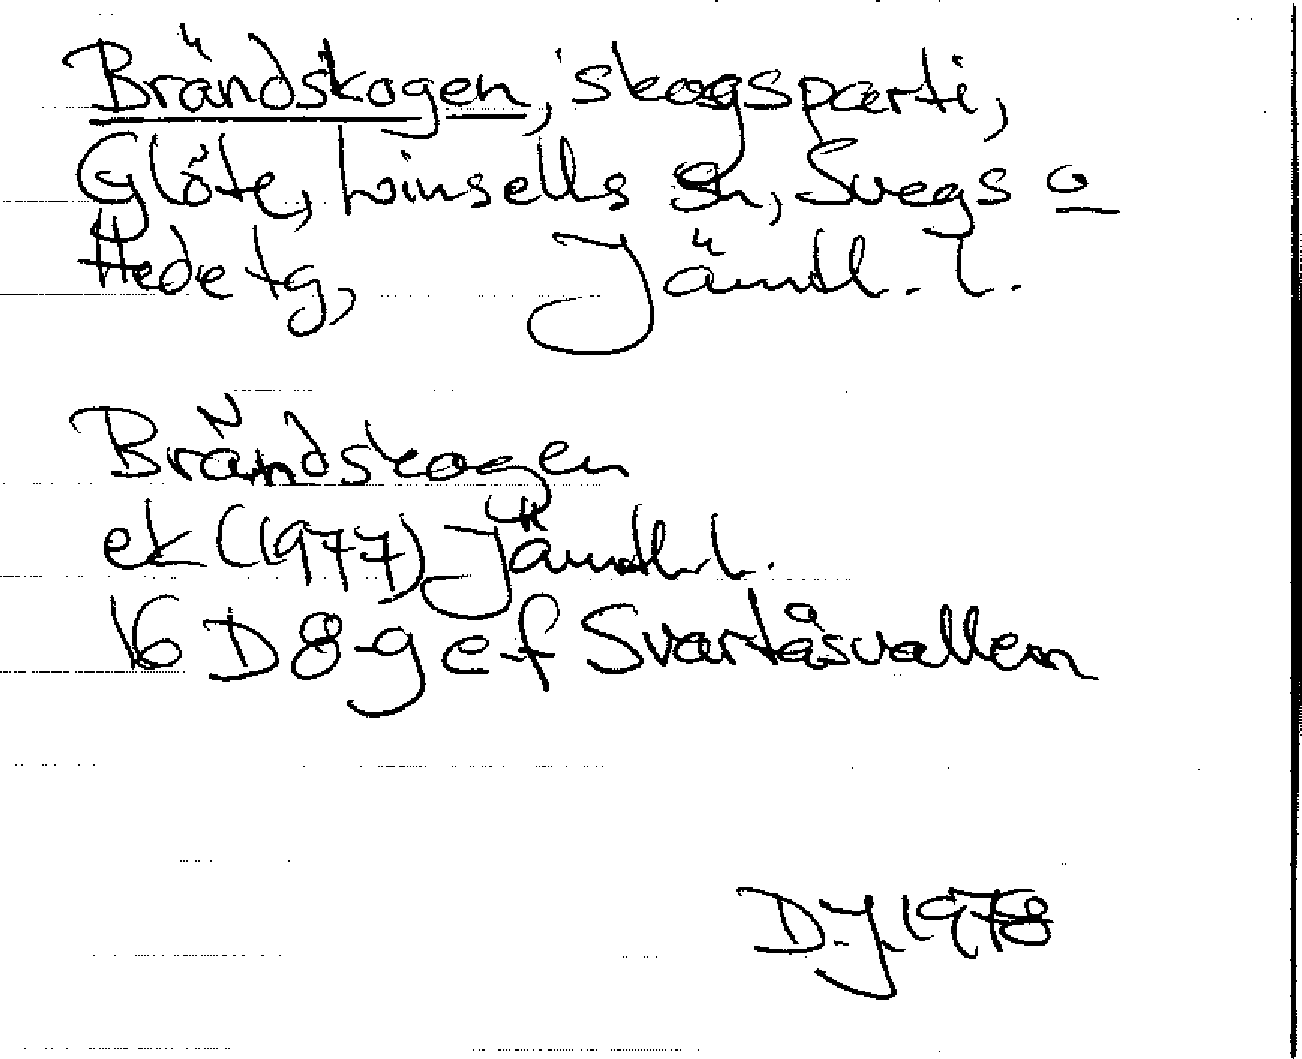 Brändskogen, skogsparti,
Glöte, Linsells sn, Svegs o
Hede tg, Jämtl. l.
Brändskogen
ek (1977) Jämtl. l.
16 D 8-g e f Svartåsvallen
D.J. 1978